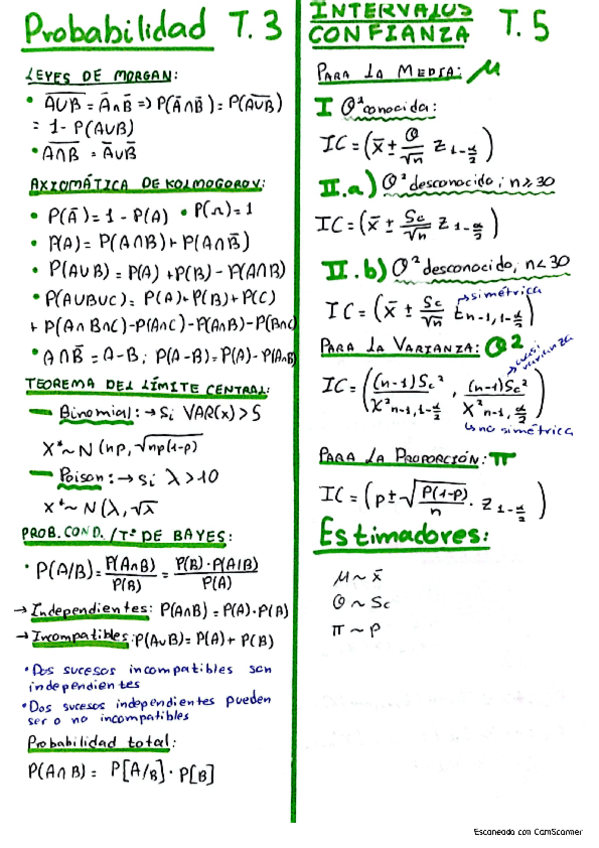 Probabilidad T.3
LEYES DE MORGAN:
• A̅U̅B̅ = A̅∩B̅ => P(A̅∩B̅) = P(A̅U̅B̅)
= 1 - P(AUB)
• A̅∩̅B̅ = A̅UB̅
AXIOMÁTICA DE KOLMOGOROV:
• P(A̅) = 1 - P(A) • P(Ω) = 1
• P(A) = P(A∩B) + P(A∩B̅)
• P(AUB) = P(A) + P(B) - P(A∩B)
• P(AUBUC) = P(A) + P(B) + P(C)
+ P(A∩B∩C) - P(A∩C) - P(A∩B) - P(B∩C)
• A∩B̅ = A-B; P(A-B) = P(A) - P(A∩B)
TEOREMA DEL LÍMITE CENTRAL:
— Binomial: → Si VAR(x) > 5
X*~ N (np, √np(1-p)
— Poison: → Si λ > 10
X*~ N (λ, √λ
PROB. COND. / Tª DE BAYES:
• P(A/B) = P(A∩B)/P(B) = P(B)·P(A/B)/P(A)
→ Independientes: P(A∩B) = P(A)·P(B)
→ Incompatibles: P(AUB) = P(A) + P(B)
• Dos sucesos incompatibles son
independientes
• Dos sucesos independientes pueden
ser o no incompatibles
Probabilidad total:
P(A∩B) = P[A/B] · P[B]
INTERVALOS
CONFIANZA T.5
PARA LA MEDIA: μ
I σ² conocida:
IC = (x̄ ± σ/√n z 1-α/2)
II.a) σ² desconocido; n ≥ 30
IC = (x̄ ± Sc/√n z 1-α/2)
II.b) σ² desconocido; n < 30
→ simétrica
IC = (x̄ ± Sc/√n t n-1, 1-α/2)
PARA LA VARIANZA: σ²
IC = ((n-1)Sc²/X² n-1, 1-α/2 , (n-1)Sc²/X² n-1, α/2)
↳ no simétrica
PARA LA PROPORCIÓN: π
IC = (p ± √P(1-P)/n · z 1-α/2)
Estimadores:
μ ~ x̄
σ ~ Sc
π ~ p
Escaneado con CamScanner